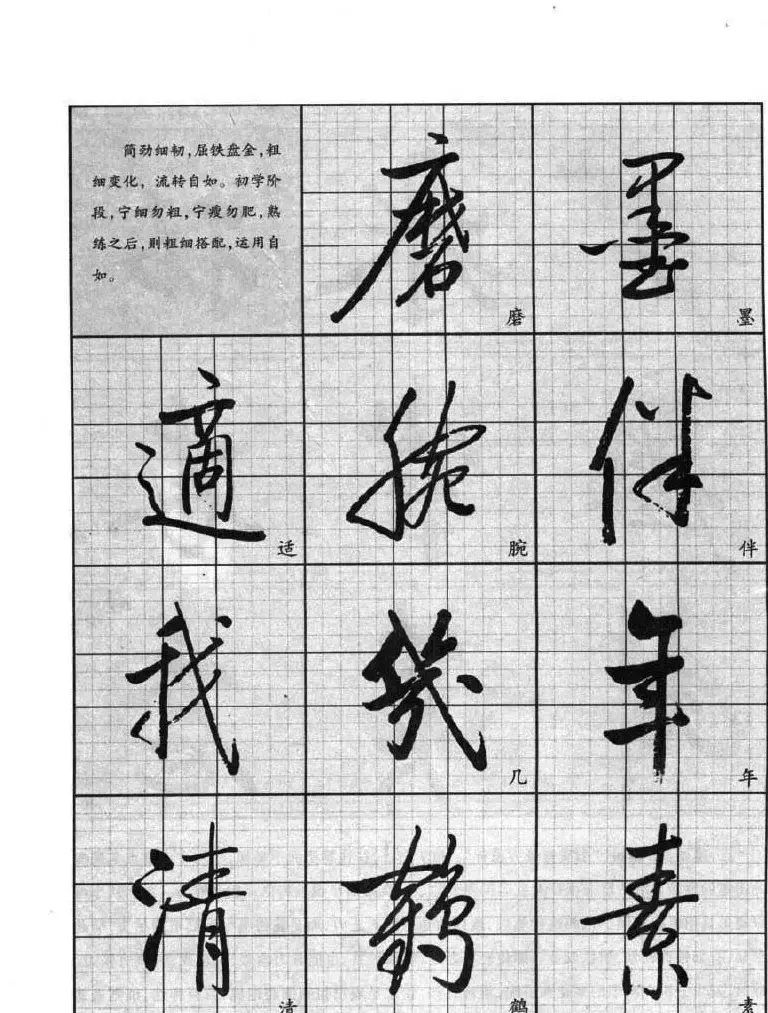 简劲细韧，屈铁盘金，粗
细变化，流转自如。初学阶
段，宁细勿粗，宁瘦勿肥，熟
练之后，则粗细搭配，运用自
如。
墨
墨
磨
磨
伴
伴
腕
腕
適
适
年
年
幾
几
我
素
素
鹤
鹤
清
清